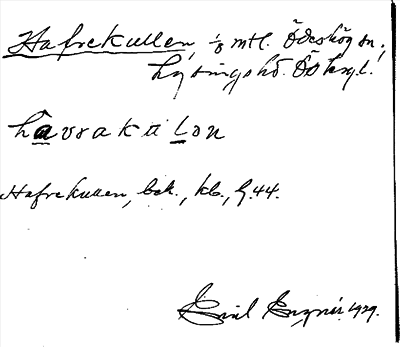 Hafrekullen, 1/8 mtl. Ödeshög sn.,
Lysings hd. Ög. l.
håvrakulon
Hafrekullen, bek., kb., g. 44.
Emil Enqvist 1929.